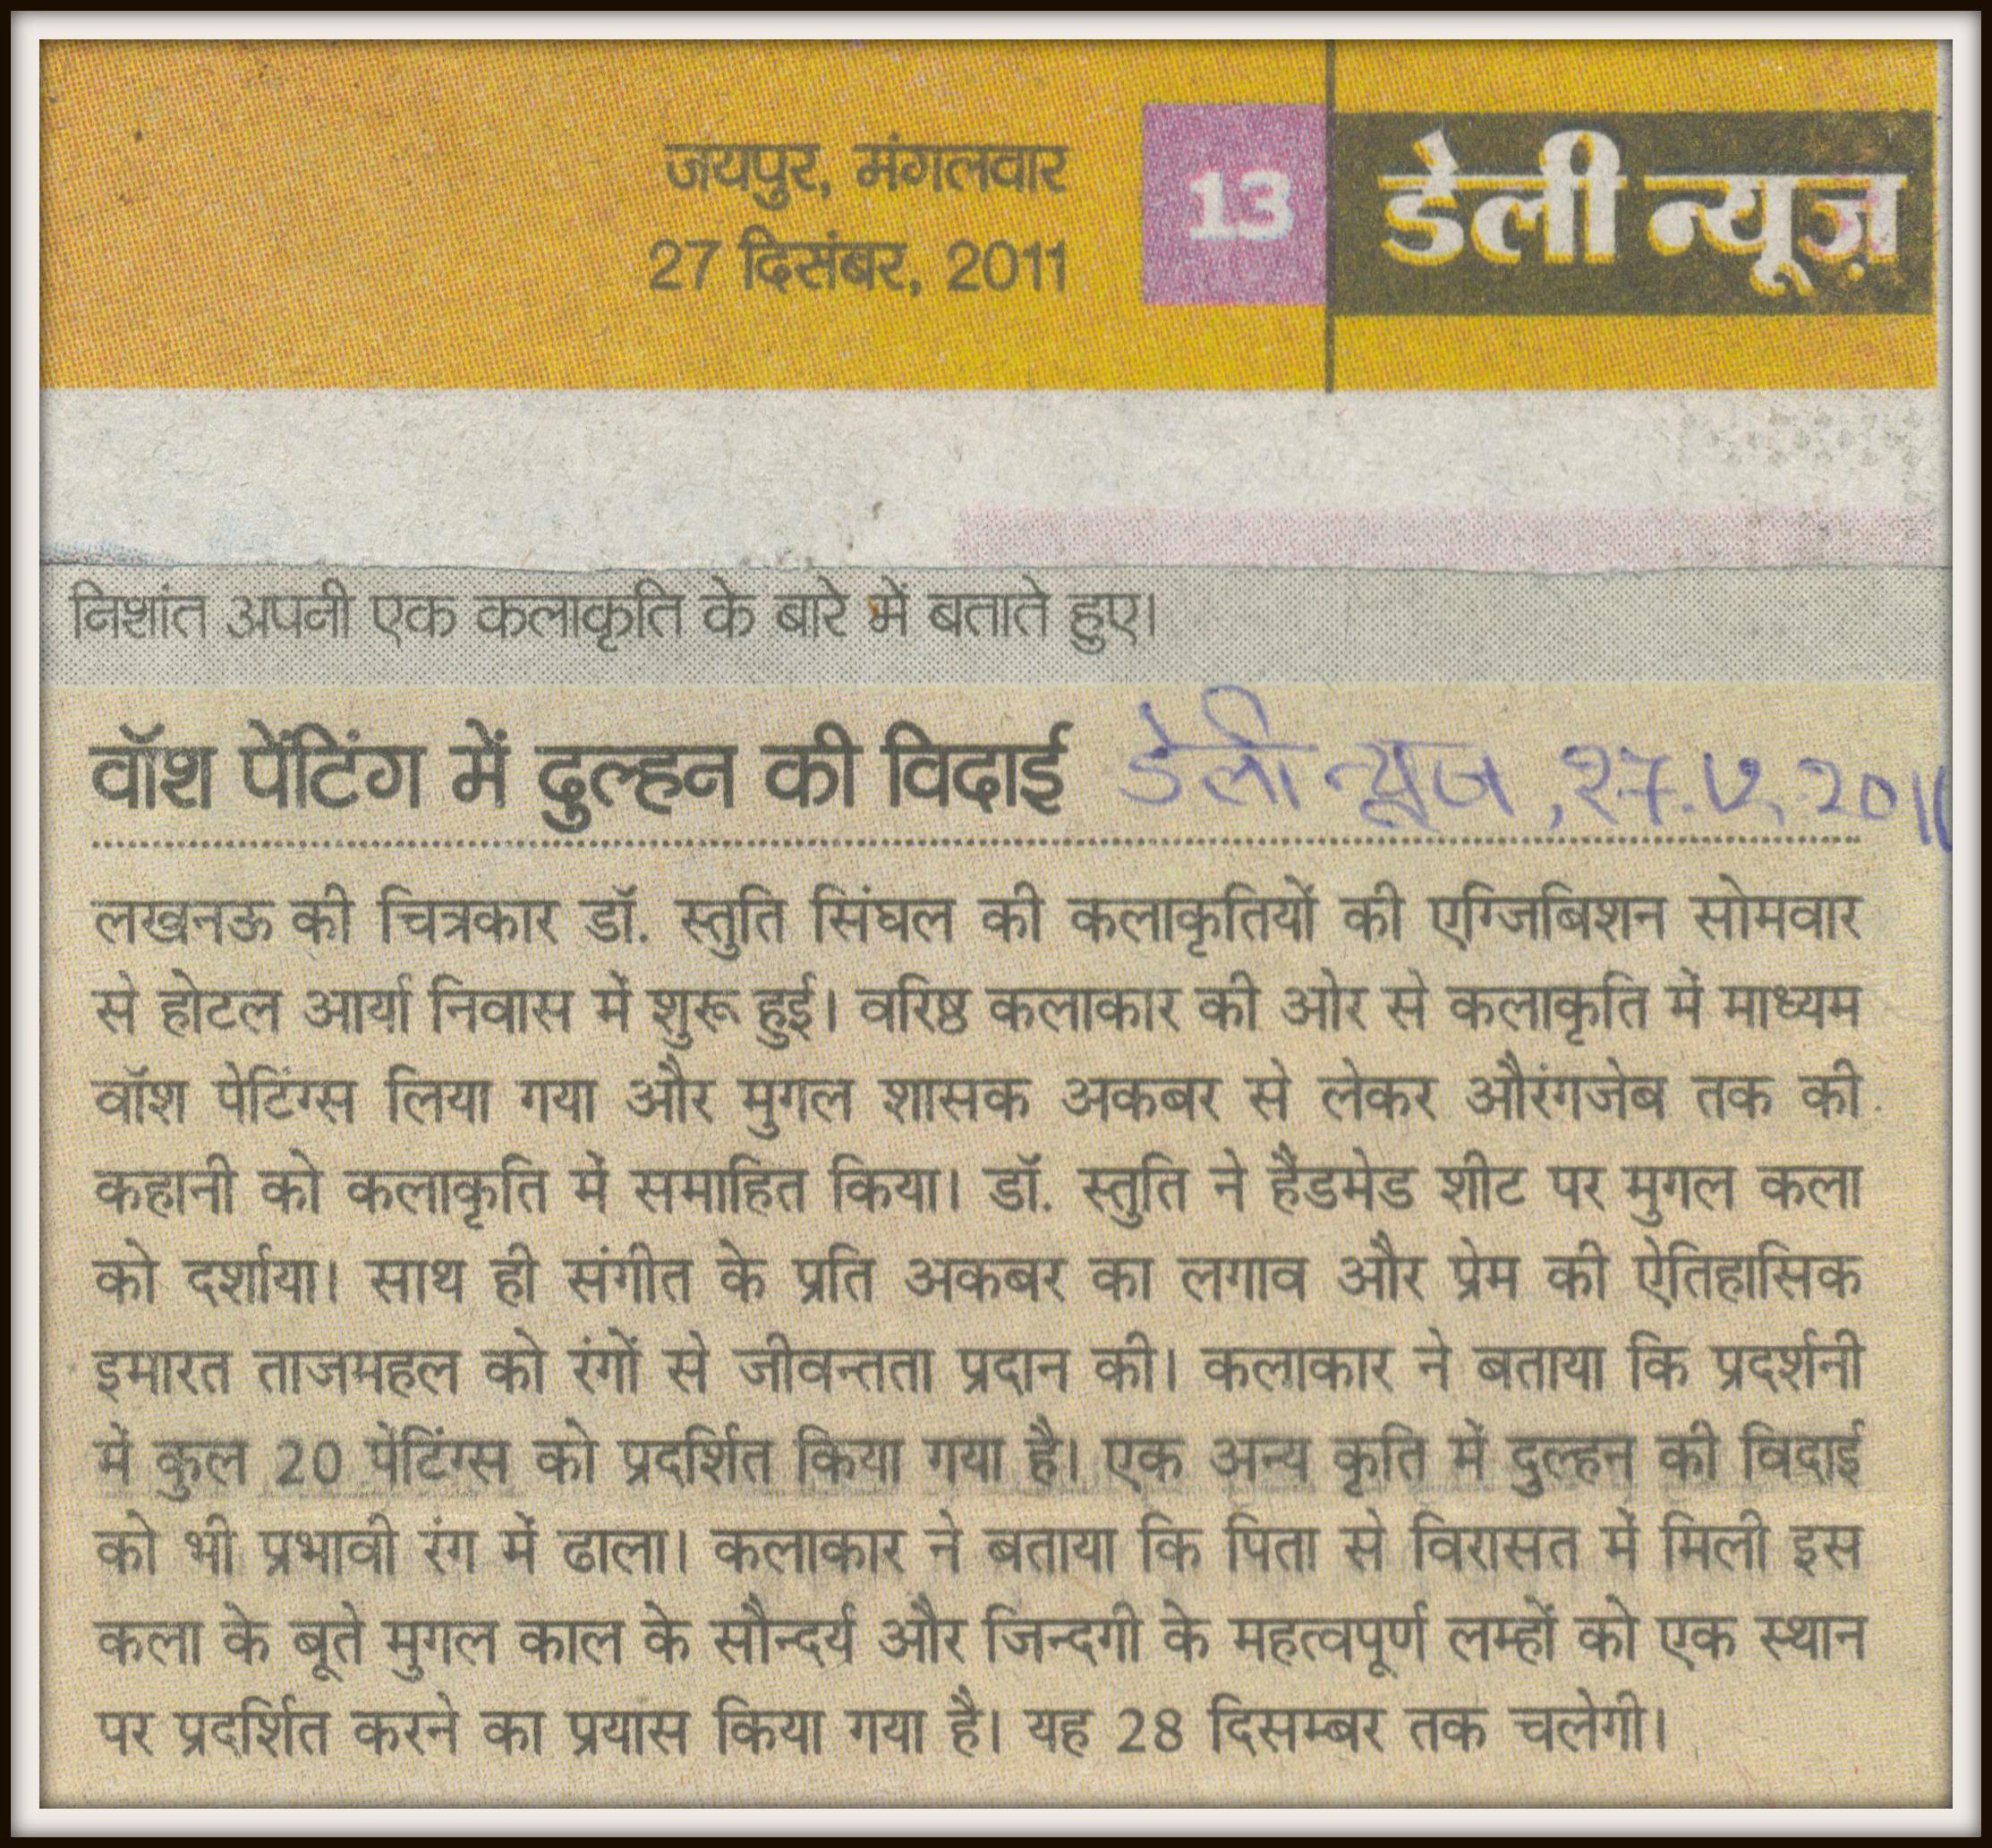 जयपुर, मंगलवार
27 दिसंबर, 2011
13
डेली न्यूज़
निशांत अपनी एक कलाकृति के बारे में बताते हुए।
वॉश पेंटिंग में दुल्हन की विदाई
डेली न्यूज, 27.12.2011
लखनऊ की चित्रकार डॉ. स्तुति सिंघल की कलाकृतियों की एग्जिबिशन सोमवार
से होटल आर्या निवास में शुरू हुई। वरिष्ठ कलाकार की ओर से कलाकृति में माध्यम
वॉश पेटिंग्स लिया गया और मुगल शासक अकबर से लेकर औरंगजेब तक की
कहानी को कलाकृति में समाहित किया। डॉ. स्तुति ने हैंडमेड शीट पर मुगल कला
को दर्शाया। साथ ही संगीत के प्रति अकबर का लगाव और प्रेम की ऐतिहासिक
इमारत ताजमहल को रंगों से जीवन्तता प्रदान की। कलाकार ने बताया कि प्रदर्शनी
में कुल 20 पेंटिंग्स को प्रदर्शित किया गया है। एक अन्य कृति में दुल्हन की विदाई
को भी प्रभावी रंग में ढाला। कलाकार ने बताया कि पिता से विरासत में मिली इस
कला के बूते मुगल काल के सौन्दर्य और जिन्दगी के महत्वपूर्ण लम्हों को एक स्थान
पर प्रदर्शित करने का प्रयास किया गया है। यह 28 दिसम्बर तक चलेगी।